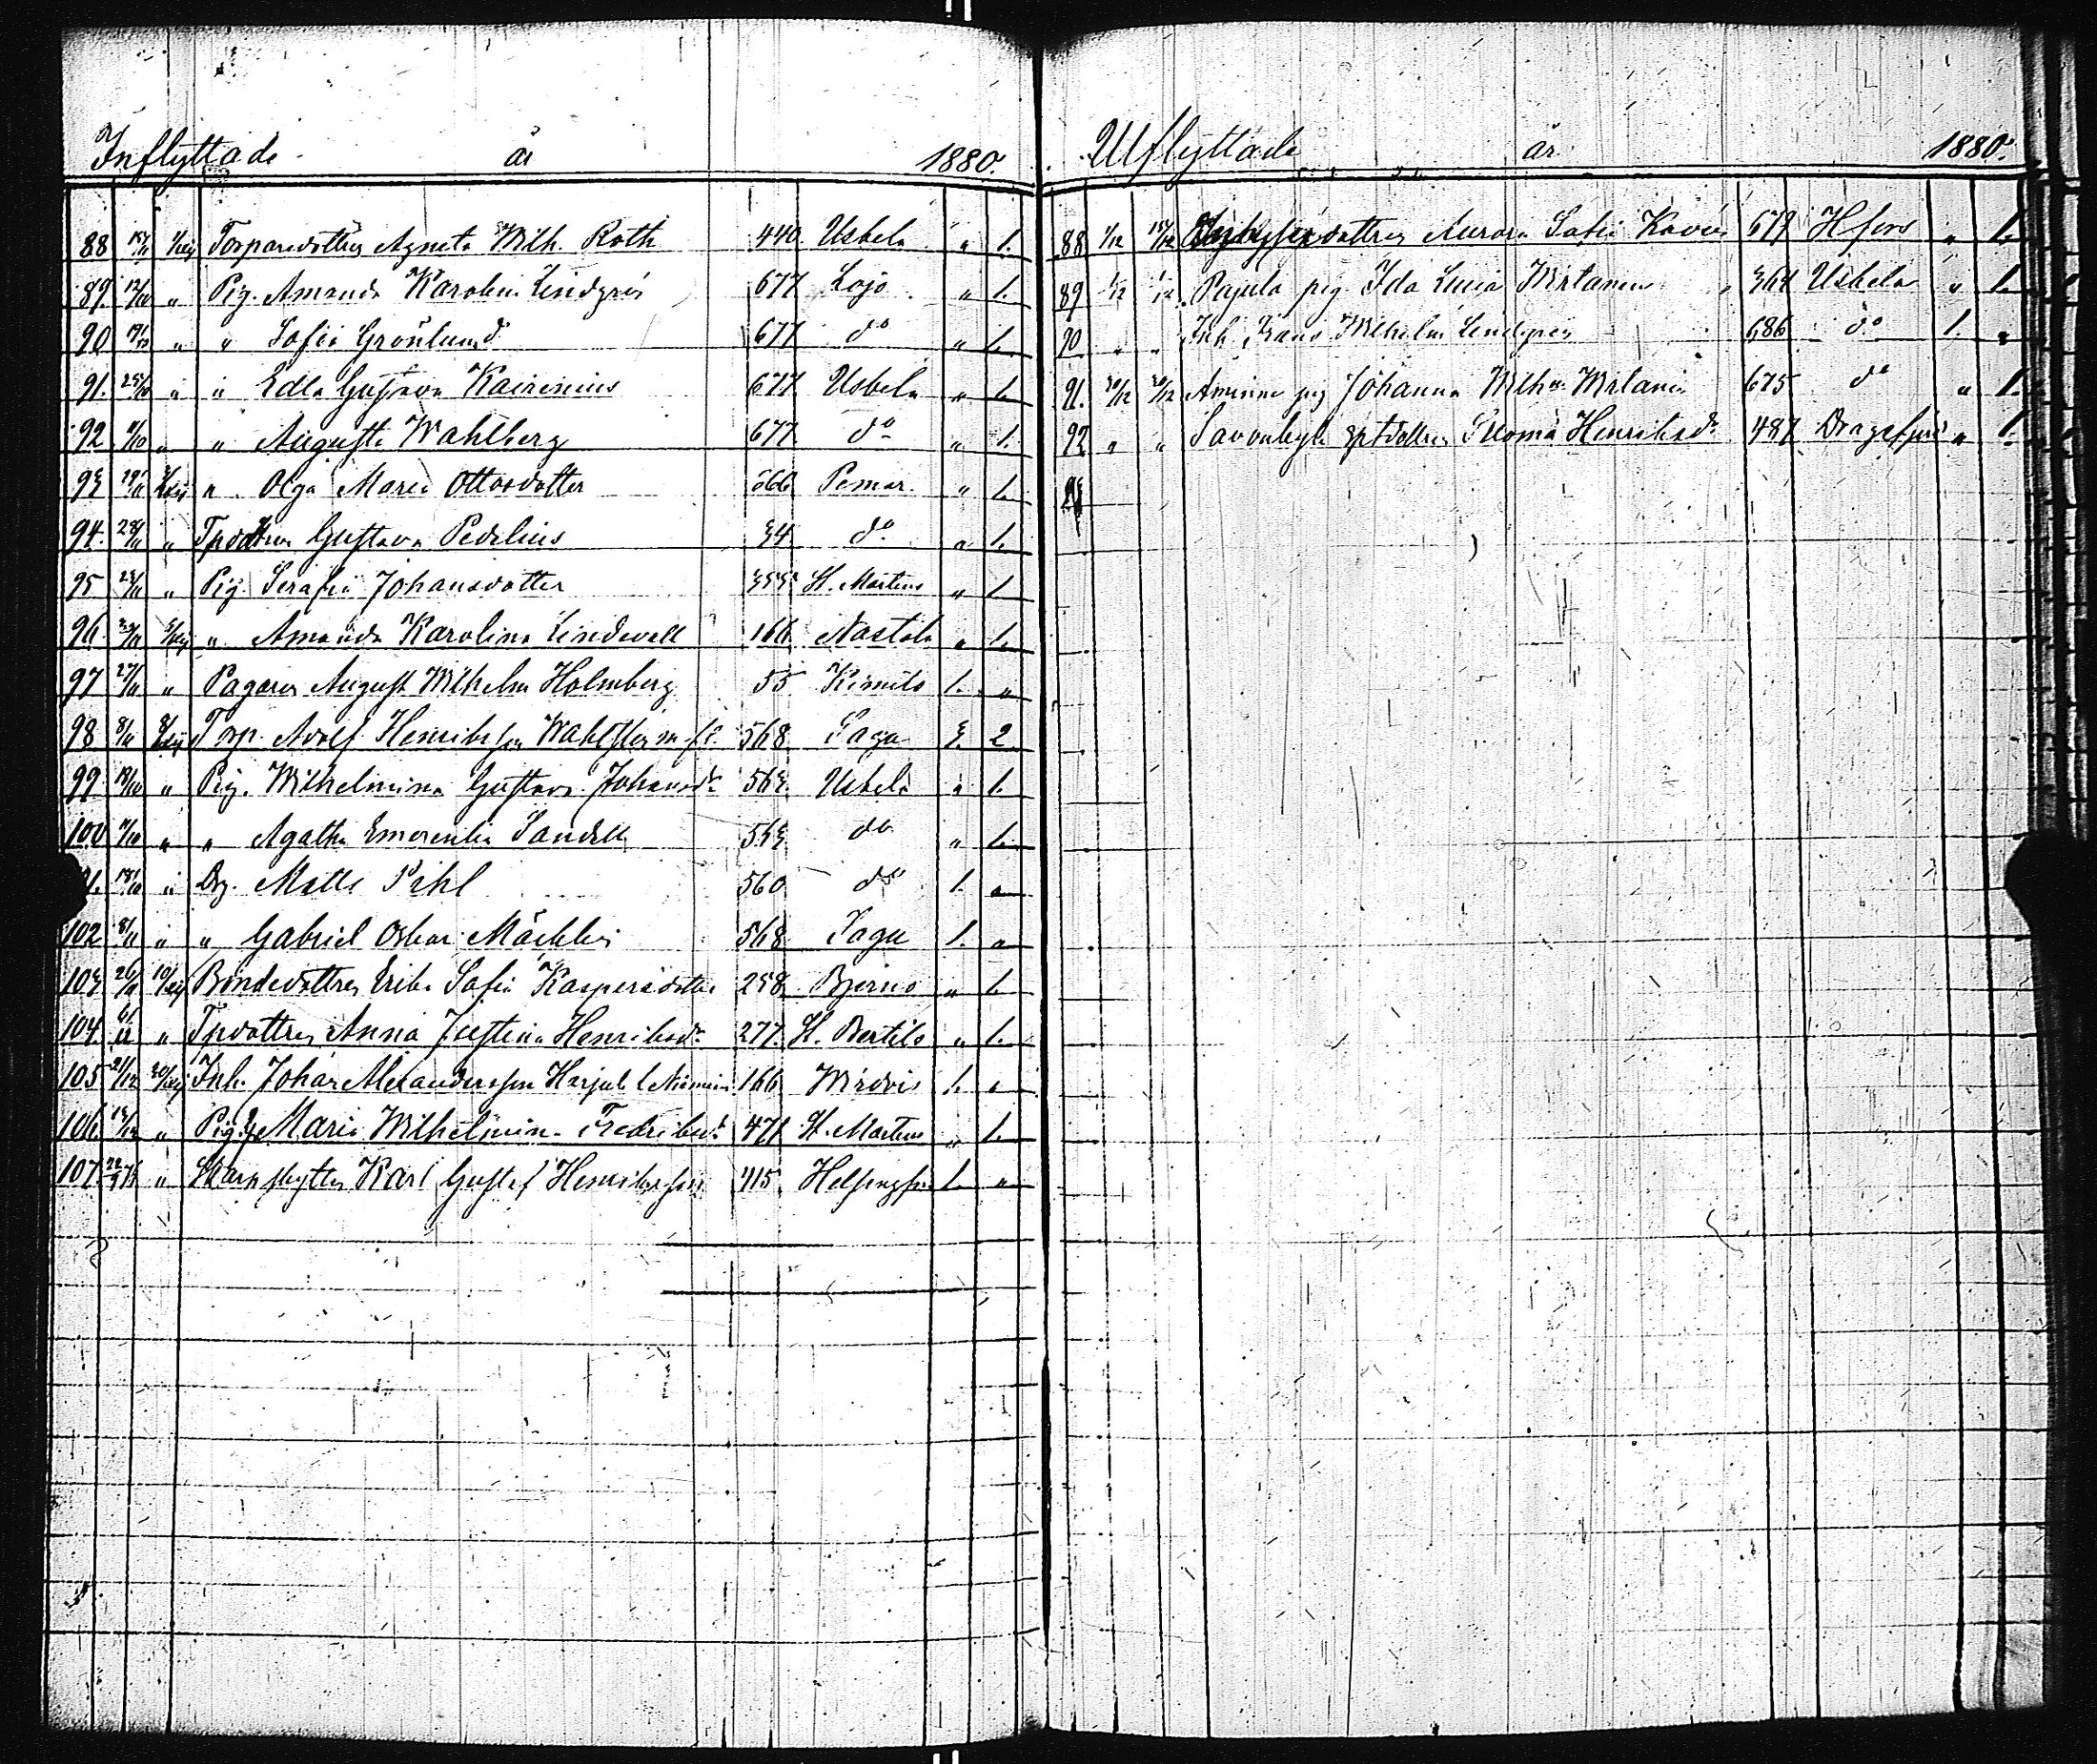 Inflyttade år 1880.
88 15/11 1/xii Torparedottren Agneta Wilh. Roth 440 Uskela " 1.
89. 12/10 " Pig. Amanda Karolina Lindgrén 677 Lojo " 1.
90 " " Sofia Grönlund 677 do " 1.
91. 25/10 " " Edla Gustava Kairenius 677 Uskela " 1.
92 " " Augusta Wahlberg 677 do " 1.
93 19/11 " Olga Maria Ottosdotter 566 Pemar " 1.
94. 28/11 " Tpdottren Gustava Pedelius 34 do " 1.
95 " Pig Serafia Johansdotter 355 St. Mårtens " 1.
96. " Amanda Karolina Lindevall 166 Nastola " 1.
97 27/11 " Pagaren August Wilhelm Holmberg 55 Kimito 1. "
98 8/11 Torp. Adolf Henriksson Wahlsten m. fl. 568 Sagu 3. 2
99 18/10 " Pig. Wilhelmina Gustava Johansdr 563 Uskela " 1.
100 " " Agatha Emerentia Sandell 563 do " 1.
18/10 " Drg. Matts Pihl 560 do 1. "
102 8/11 " " Gabriel Oskar Mäkklin 568 Sagu 1. "
103 26/11 Bondedottren Erika Sofia Kaspersdotter 258 Bjerno " 1.
104. " Tpdottren Anna Justina Henriksdr 277. St. Bertils " 1.
105 21/12 Inh. Johan Alexandersson Harjula l. Nieminen 166 Wirdois 1. "
106. " Pig. Maria Wilhelmina Fredriksdr 471 St. Mårtens " 1.
107. " Skarpskytten Karl Gustaf Henriksson 415 Helsingfors 1. "
Utflyttade år 1880.
88 1/12 18/12 dottren Aurora Sofia Kovén 679 Hfors " 1.
89 1/12 1/12 Pajula pig. Ida Lucia Wirtanen 364 Uskela " 1.
90 " " Inh Frans Wilhelm Lindgren 686 do 1. "
91. 20/12 20/12 Aminne pig Johanna Wilh:a Wirtanen 675 do " 1.
92 " " Savonkylä Johanna Henriksdr 487 Dragsfjärd " 1.